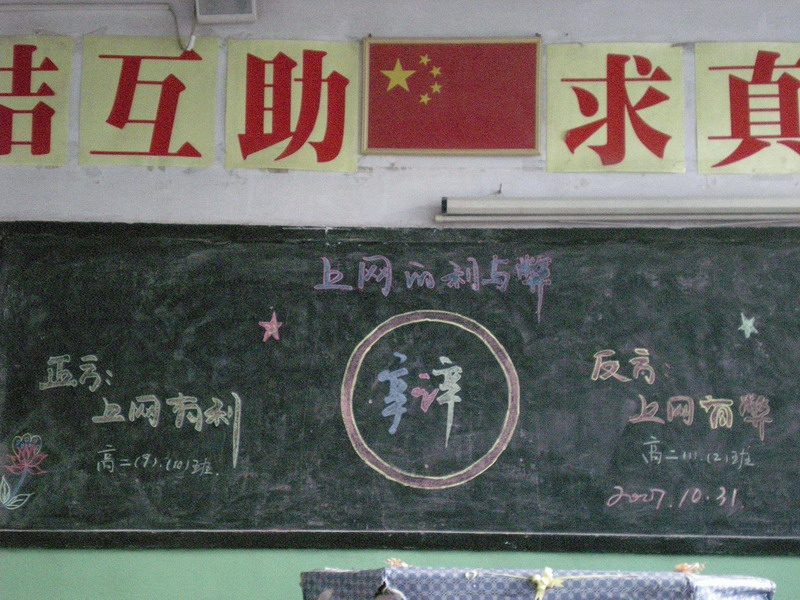 结互助 求真
上网的利与弊
正方：
上网有利
高二(9).(10)班.
辩
反方：
上网有弊
高二(1).(2)班
2007.10.31.